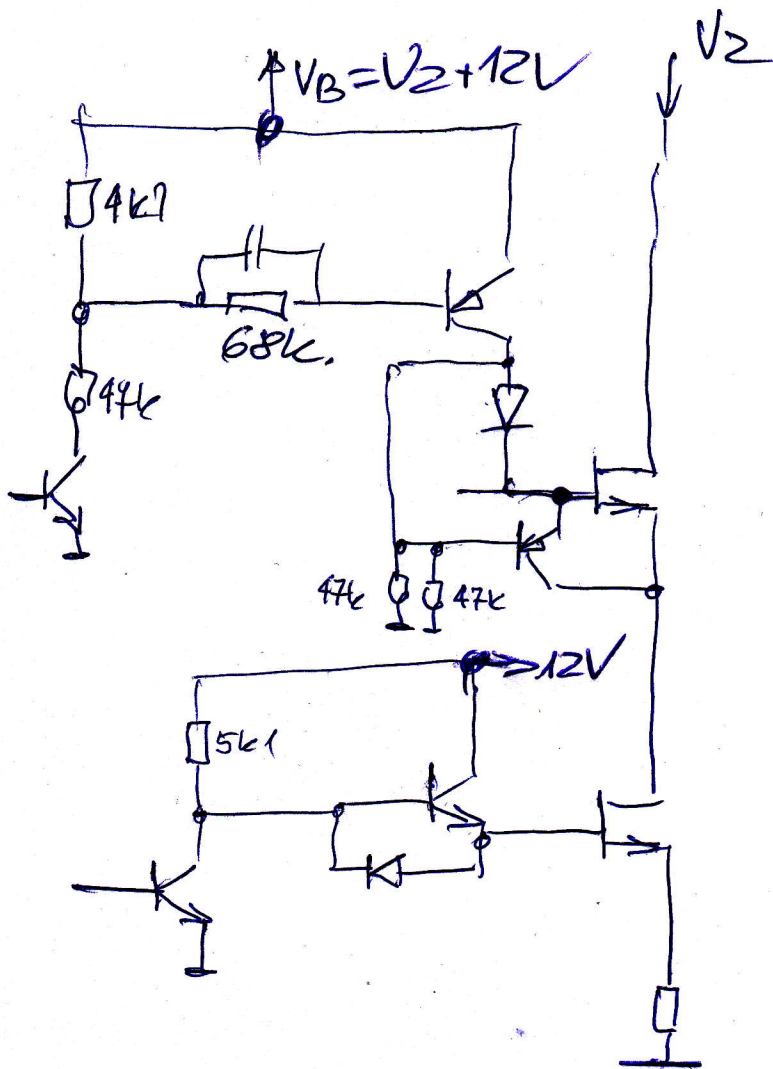 VZ
VB=VZ+12V
4k7
68k.
47k
47k
47k
12V
5k1